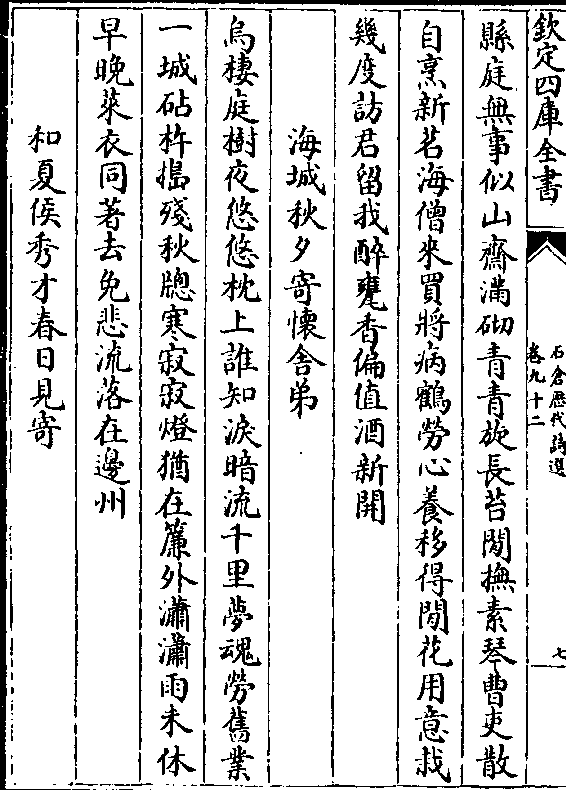 欽定四庫全書
石倉歷代詩選
卷九十二
七
縣庭無事似山齋滿砌青青旋長苔閒撫素琴曹吏散
自烹新茗海僧來買將病鶴勞心養移得閒花用意栽
幾度訪君留我醉甕香偏值酒新開
海城秋夕寄懷舍弟
烏棲庭樹夜悠悠枕上誰知淚暗流千里夢魂勞舊業
一城砧杵搗殘秋牕寒寂寂燈猶在簾外瀟瀟雨未休
早晚萊衣同著去免悲流落在邊州
和夏侯秀才春日見寄